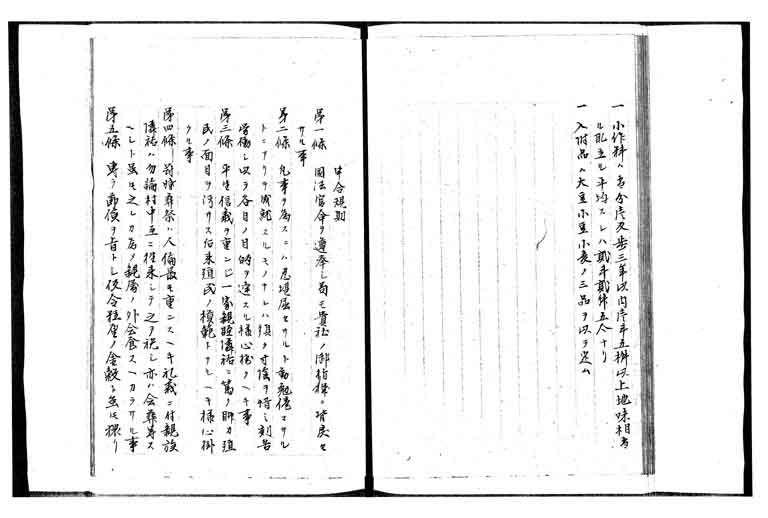 一 小作料ハ当分反歩三年以内反斗五桝以上地味相当
ル取立ル平均スレハ貳斗貳桝五合ナリ
一 入附品ハ大豆小豆小麦ノ三品ヲ以テ定ム
申合規則
第一條 国法官命ヲ遵奉シ苟モ貴社ノ御指揮ニ背戻セ
サル事
第二條 凡事ヲ為スニハ忍堪屈セサルト勤勉倦マサル
トニアリテ成就スルモノナレハ須ク寸陰ヲ惜ミ刻苦
労働シ以テ各自ノ目的ヲ達スル様心掛クヘキ事
第三條 平生信義ヲ重ンシ一家親睦隣祐ニ篤ク聊カ殖
民ノ面目ヲ汚サス后来殖民ノ模範トナルヘキ様心掛
クル事
第四條 冠婚葬祭ハ人倫最モ重ンスヘキ礼義ニ付親族
隣祐ハ勿論村中互ニ往来シテ之ヲ祝シ亦ハ会葬弔ス
ヘシト虽モ之レカ為メ親属ノ外会食スヘカラサル事
第五條 専ラ節倹ヲ旨トシ仮令種産ノ金穀ト虽モ猥リ